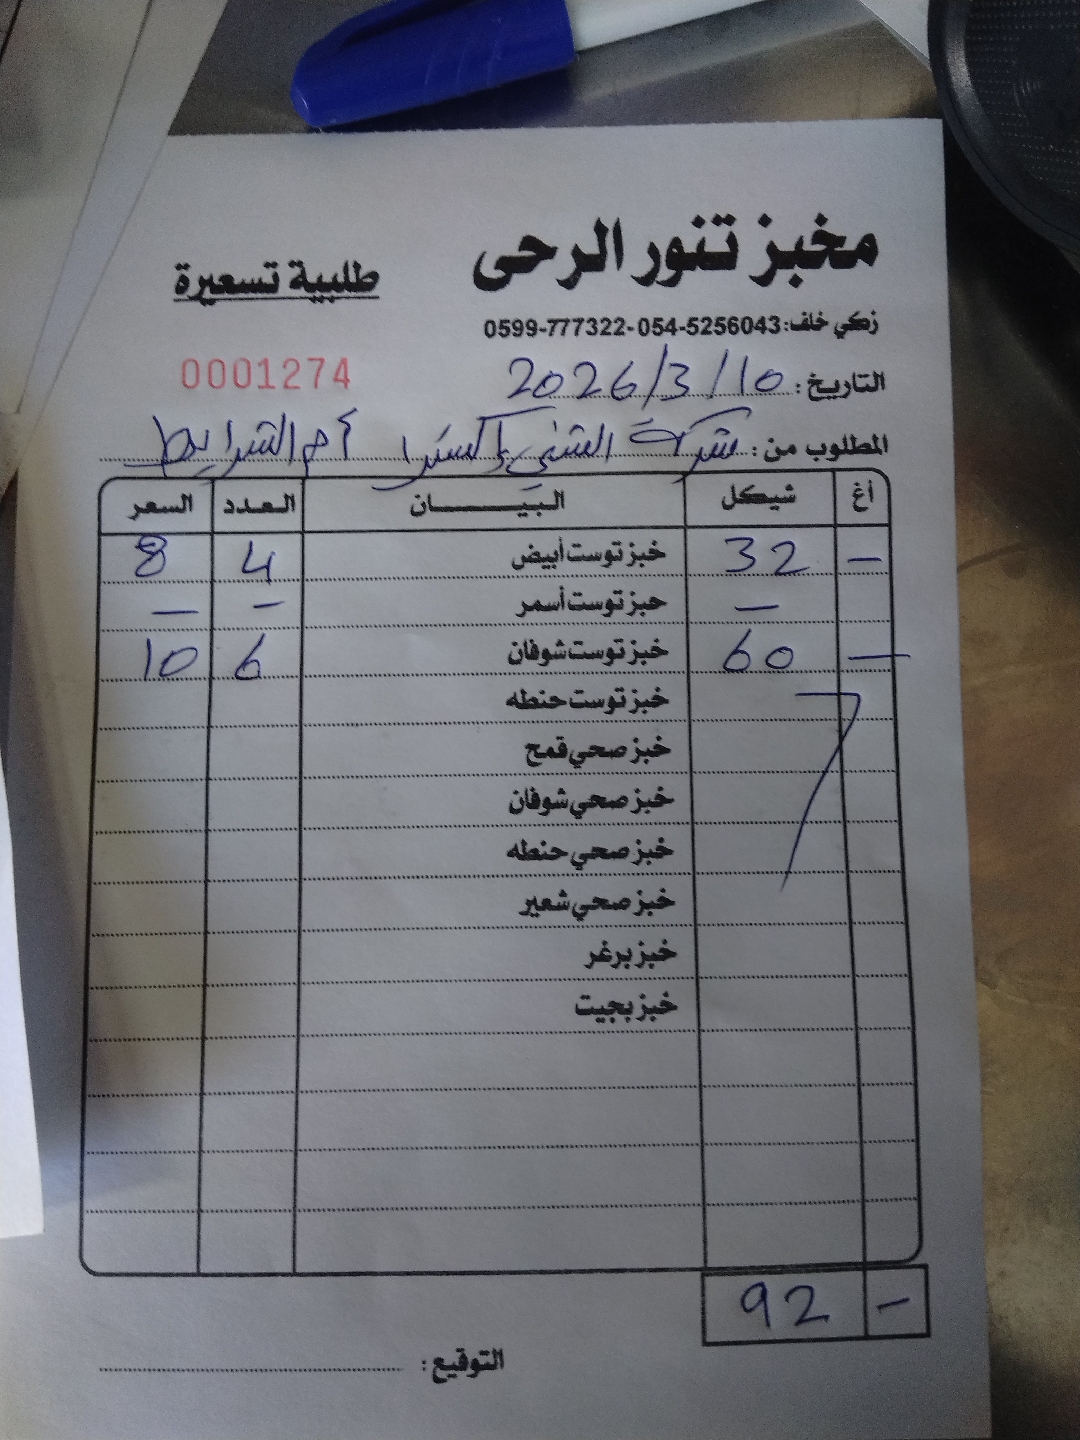 مخبز تنور الرحى
طلبية تسعيرة
زكي خلف: 054-5256043 - 0599-777322
0001274
التاريخ: 2026/3/10
المطلوب من: شركة الشني إكسترا أم الشرايط
أغ شيكل البيان العدد السعر
— 32 خبز توست أبيض 4 8
— خبز توست أسمر — —
— 60 خبز توست شوفان 6 10
خبز توست حنطه
خبز صحي قمح
خبز صحي شوفان
خبز صحي حنطه
خبز صحي شعير
خبز برغر
خبز بجيت
— 92
التوقيع: